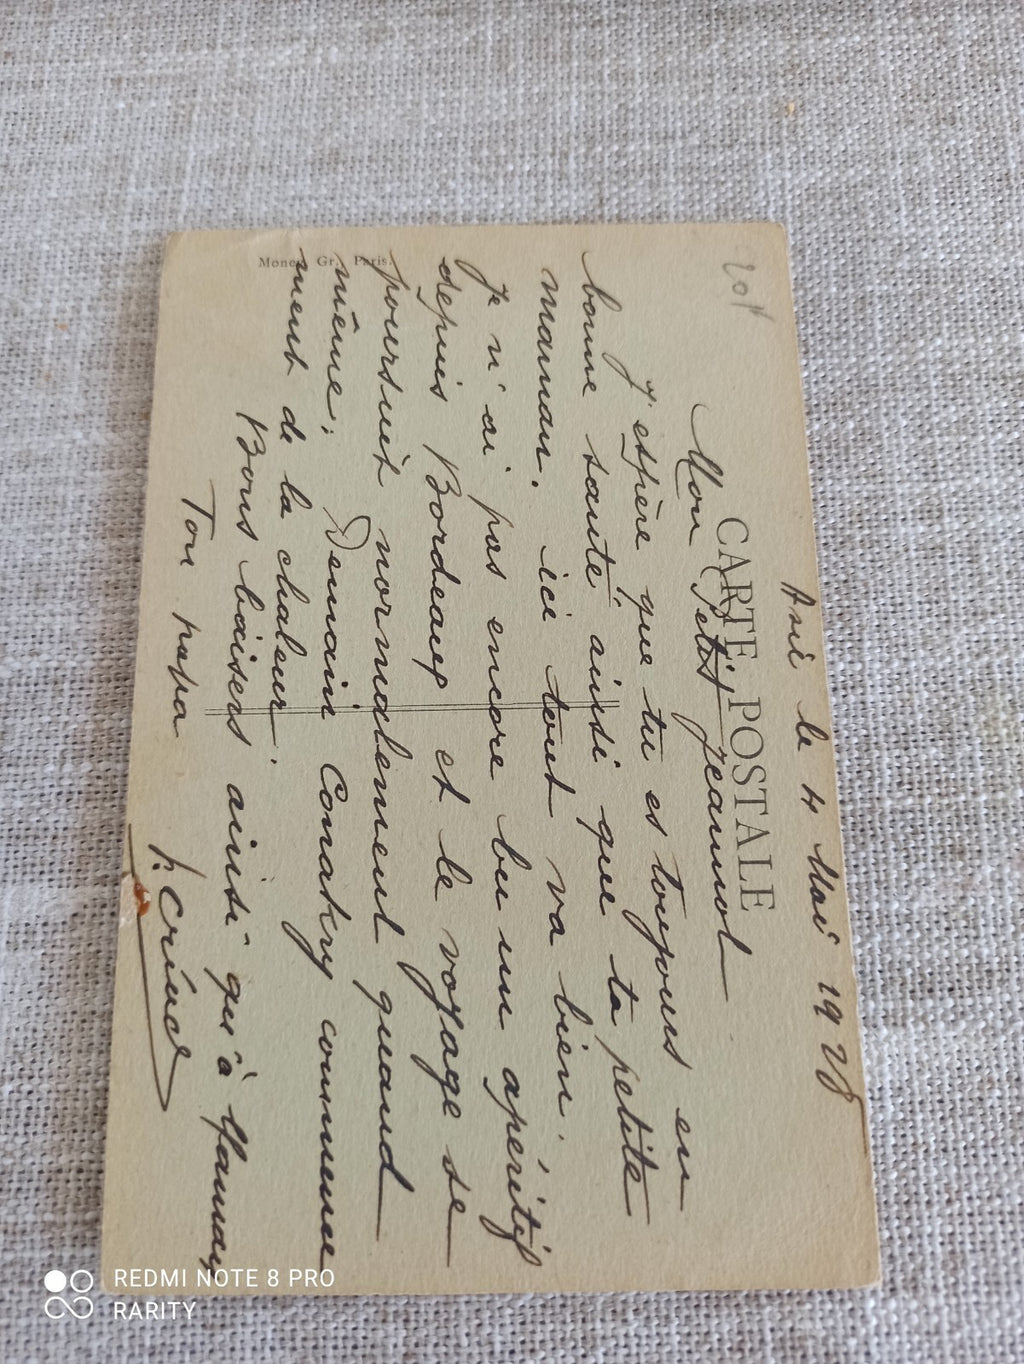 le 4 Mai 1928
CARTE POSTALE
201
Mon Petit Jeannot
J'espère que tu es toujours en
bonne santé ainsi que ta petite
maman. ici tout va bien.
Je n'ai pas encore bu un apéritif
depuis Bordeaux et le voyage se
poursuit normalement quand
même; Demain Conakry commence
ment de la chaleur.
Bons baisers ainsi qu'à Maman
Ton papa
Gr. Paris.
REDMI NOTE 8 PRO
RARITY